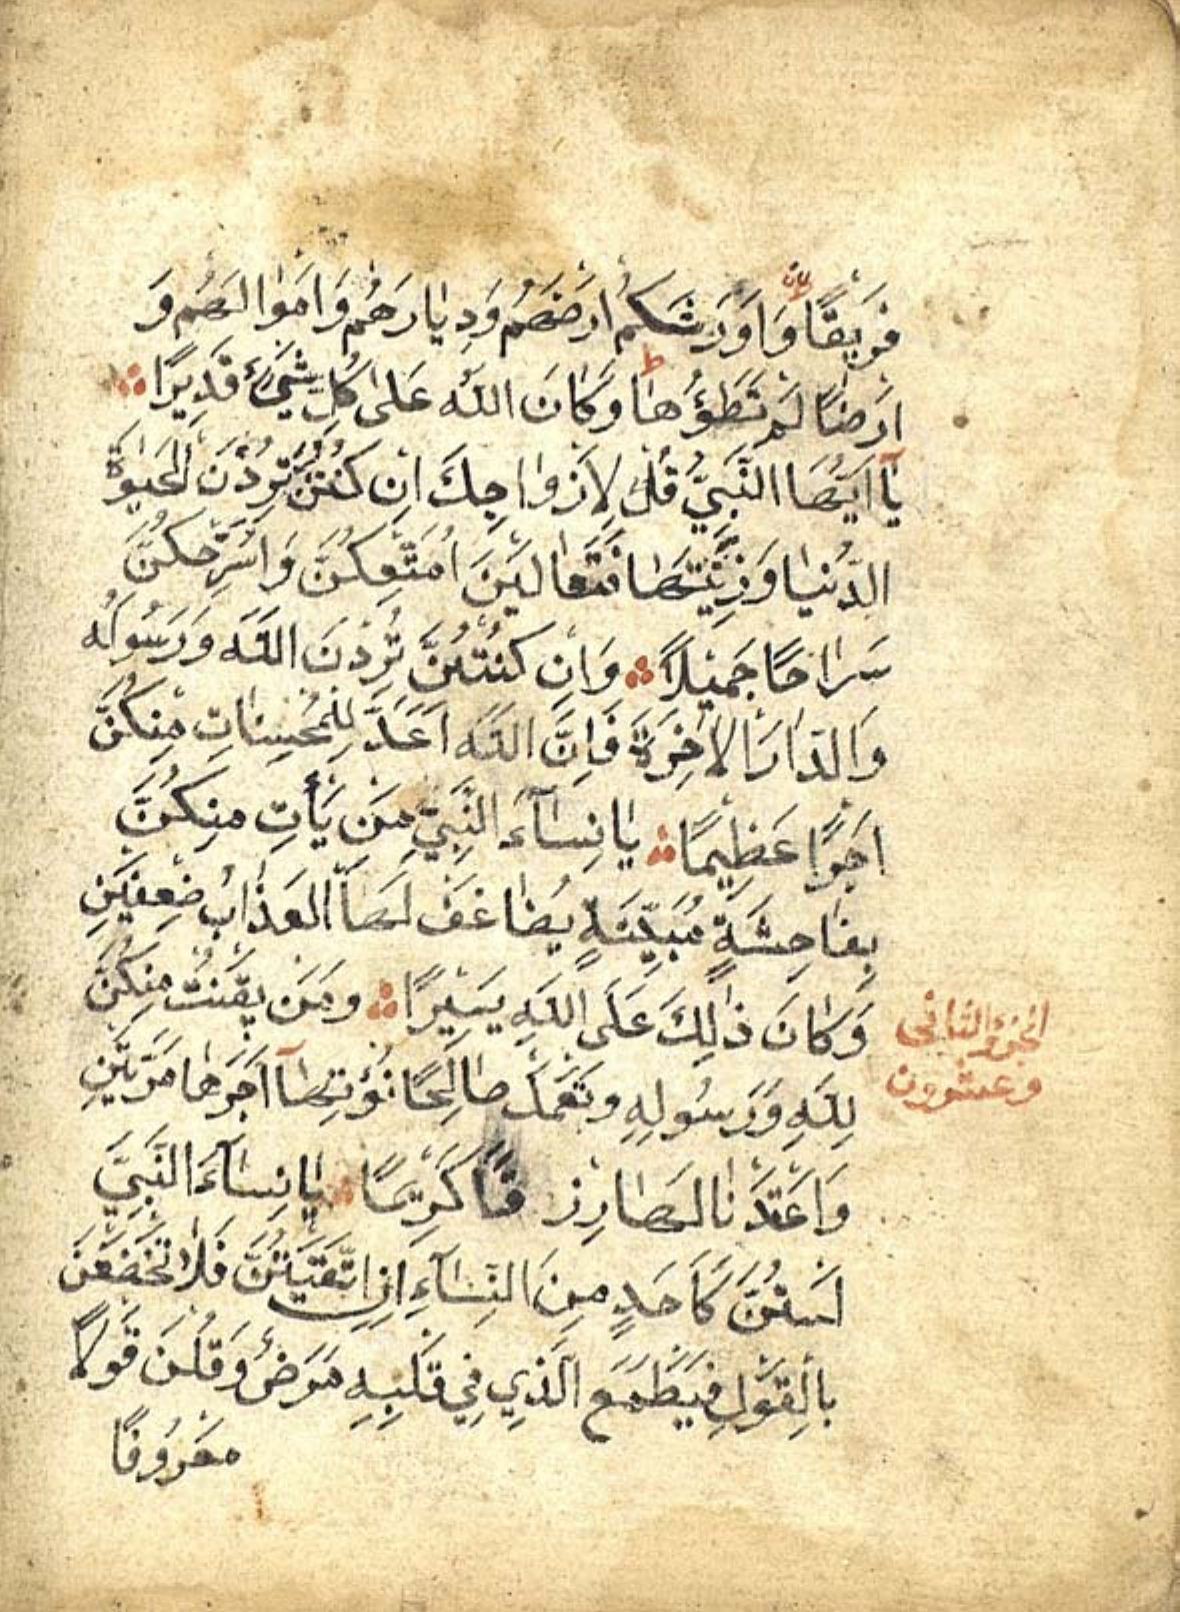 فَرِيقًا وَاَوْرَثَكُمْ اَرْضَهُمْ وَدِيَارَهُمْ وَاَمْوَالَهُمْ وَ
اَرْضًا لَمْ تَطَؤُهَا وَكَانَ اللّٰهُ عَلٰى كُلِّ شَيْءٍ قَدِيرًا
يَآ اَيُّهَا النَّبِيُّ قُلْ لِاَزْوَاجِكَ اِنْ كُنْتُنَّ تُرِدْنَ الْحَيٰوةَ
الدُّنْيَا وَزِينَتَهَا فَتَعَالَيْنَ اُمَتِّعْكُنَّ وَاُسَرِّحْكُنَّ
سَرَاحًا جَمِيلًا وَاِنْ كُنْتُنَّ تُرِدْنَ اللّٰهَ وَرَسُولَهُ
وَالدَّارَ الْاٰخِرَةَ فَاِنَّ اللّٰهَ اَعَدَّ لِلْمُحْسِنَاتِ مِنْكُنَّ
اَجْرًا عَظِيمًا يَا نِسَآءَ النَّبِيِّ مَنْ يَأْتِ مِنْكُنَّ
بِفَاحِشَةٍ مُبَيِّنَةٍ يُضَاعَفْ لَهَا الْعَذَابُ ضِعْفَيْنِ
وَكَانَ ذٰلِكَ عَلَى اللّٰهِ يَسِيرًا وَمَنْ يَقْنُتْ مِنْكُنَّ
الجزء الثاني
وعشرون
لِلّٰهِ وَرَسُولِهِ وَتَعْمَلْ صَالِحًا نُؤْتِهَآ اَجْرَهَا مَرَّتَيْنِ
وَاَعْتَدْنَا لَهَا رِزْقًا كَرِيمًا يَا نِسَآءَ النَّبِيِّ
لَسْتُنَّ كَاَحَدٍ مِنَ النِّسَآءِ اِنِ اتَّقَيْتُنَّ فَلَا تَخْضَعْنَ
بِالْقَوْلِ فَيَطْمَعَ الَّذِي فِي قَلْبِهِ مَرَضٌ وَقُلْنَ قَوْلًا
مَعْرُوفًا